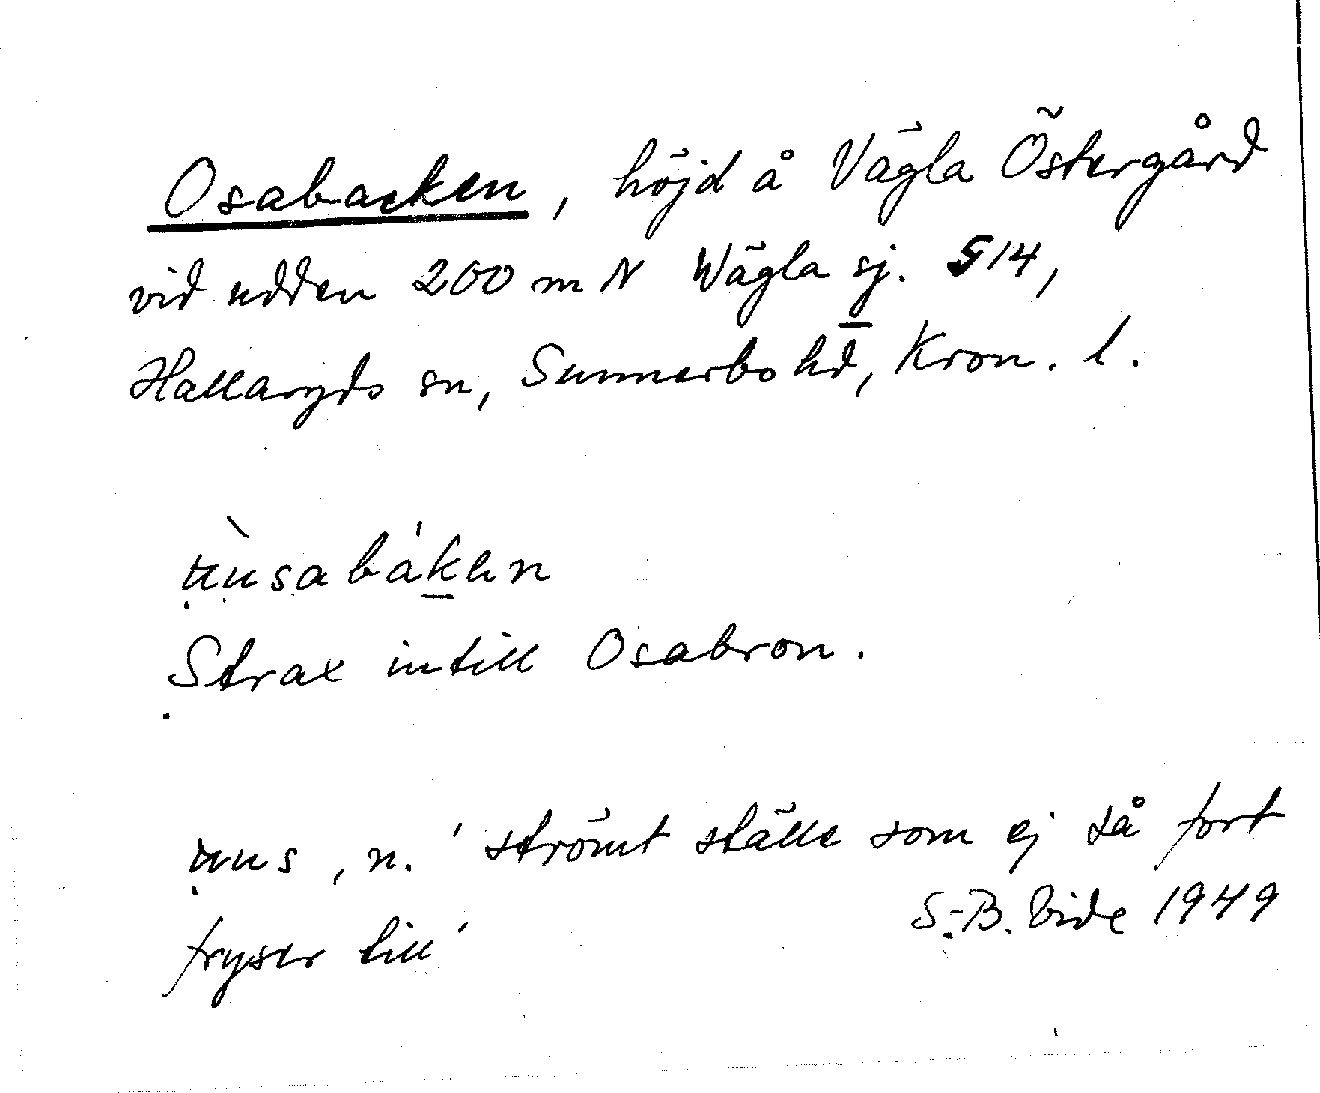 Osabacken, höjd å Vägla Östergård
vid udden 200 m N Wägla sj. S14,
Hallaryds sn, Sunnerbo hd, Kron. l.
ùusabáken
Strax intill Osabron.
uus, n. ' strömt ställe som ej så fort
fryser till'
S.-B. Vide 1949